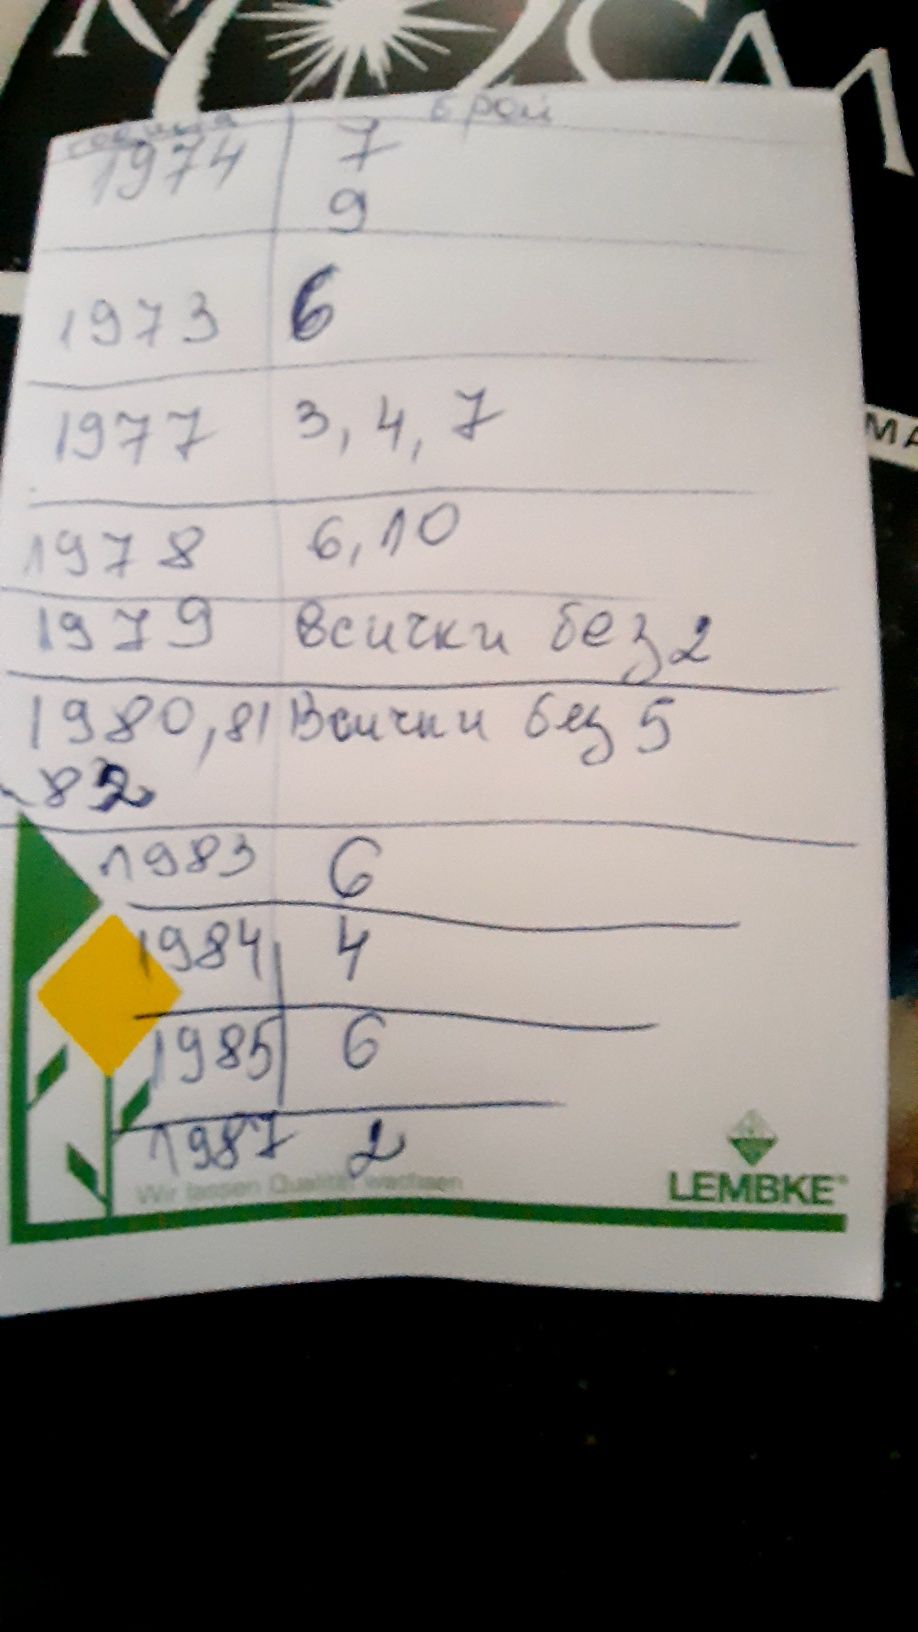 КОСМ
МА
година брой
1974 7
9
1973 6
1977 3, 4, 7
1978 6, 10
1979 всички без 2
1980, 81 Всички без 5
82
1983 6
1984 4
1985 6
1987 2
Wir lassen Qualität wachsen
LEMBKE®